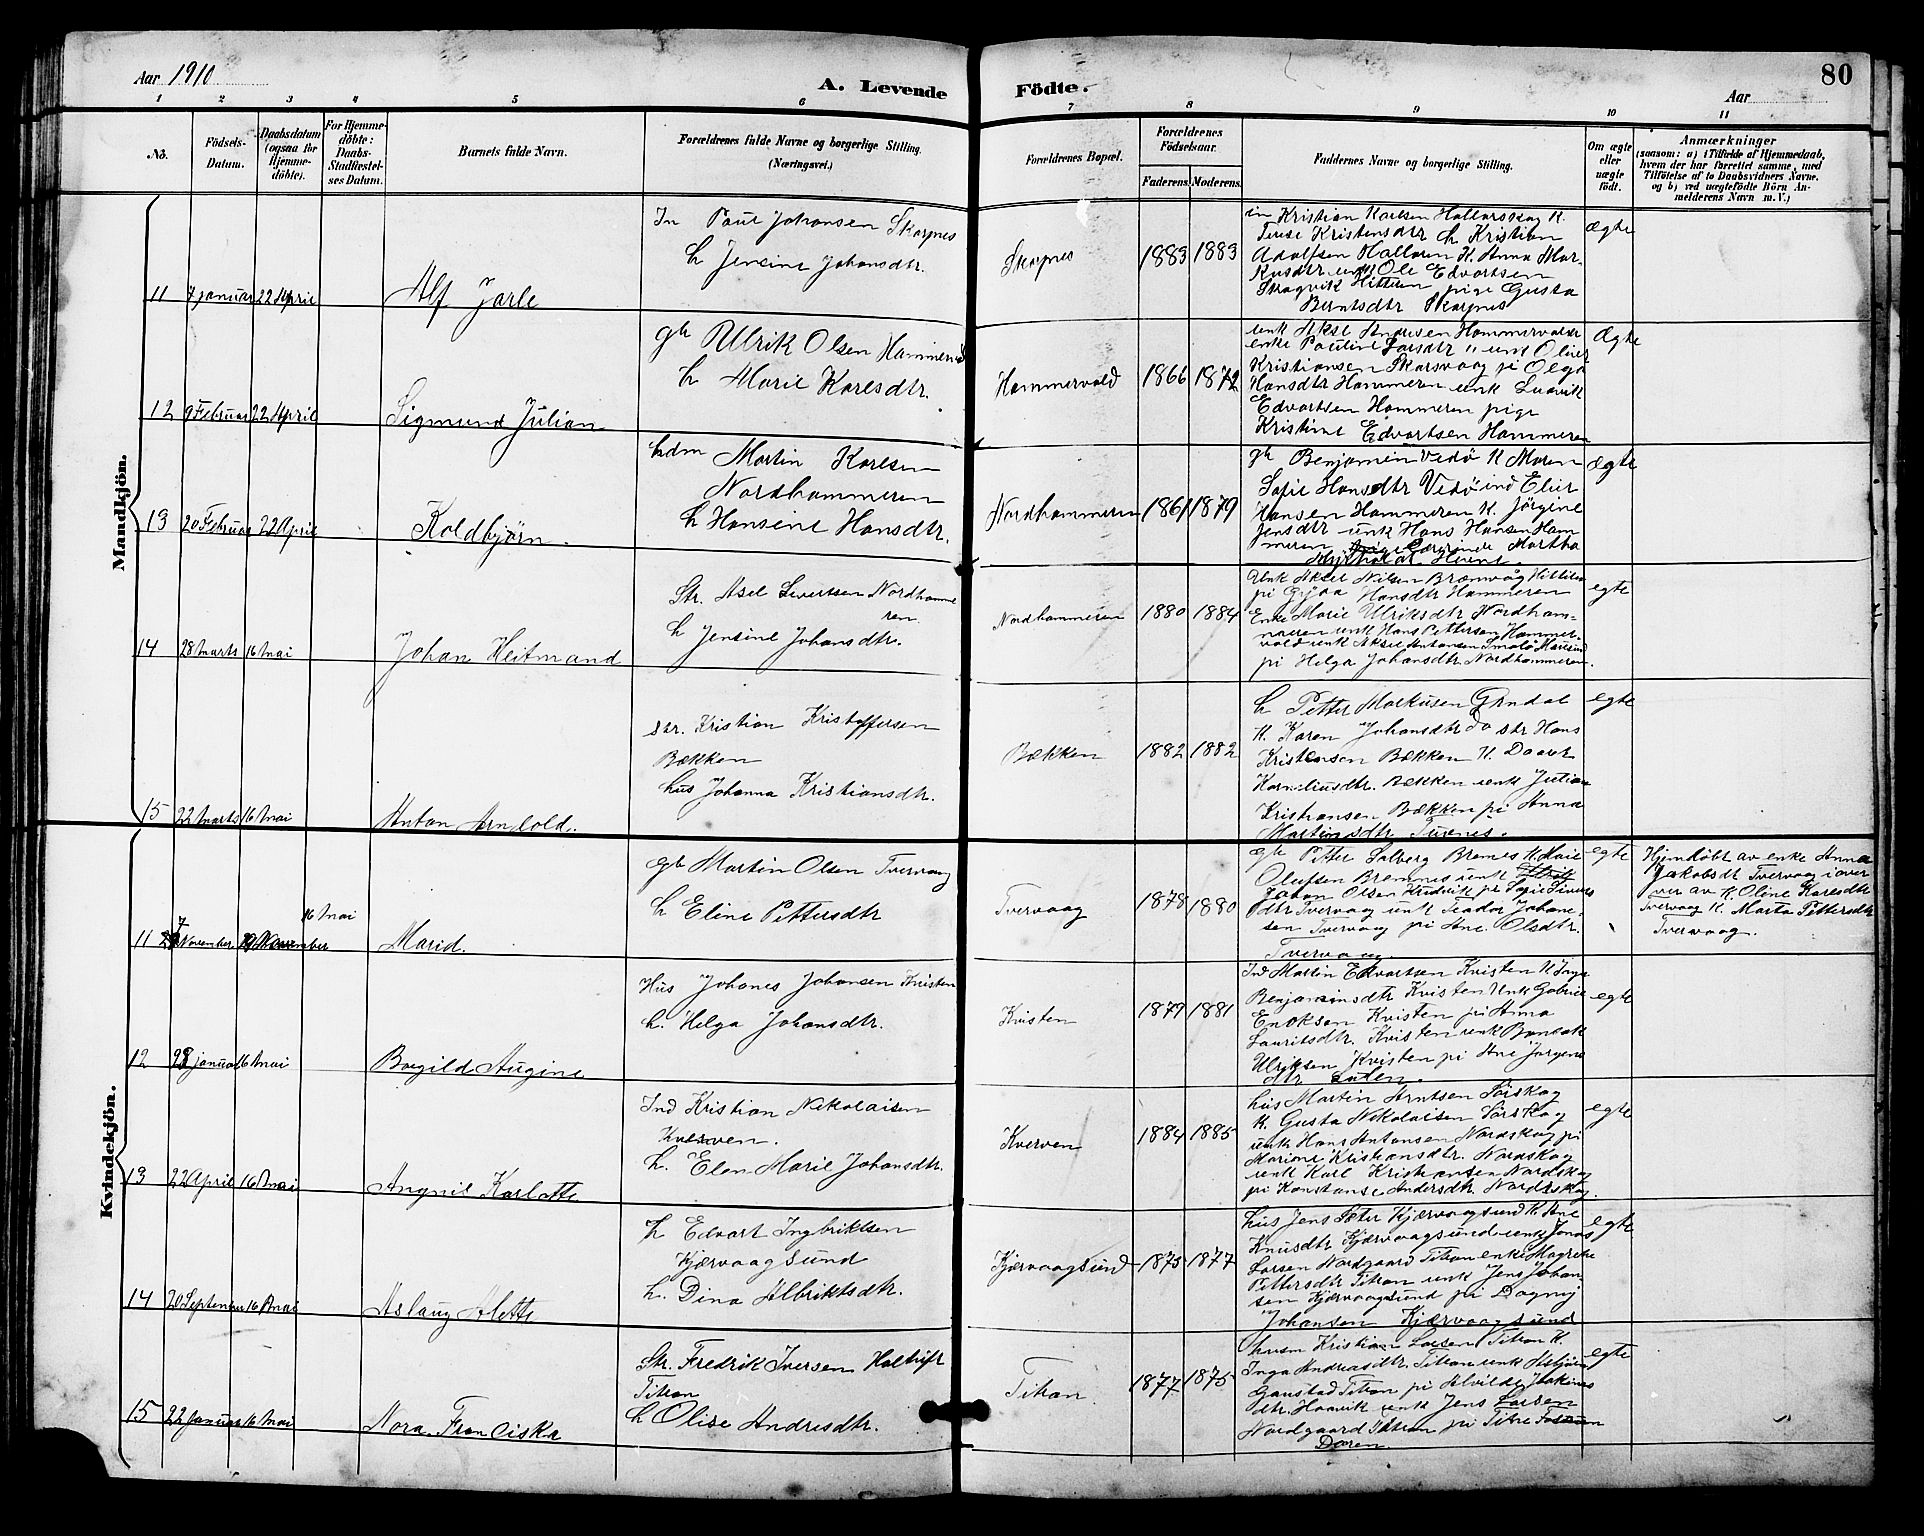 Aar 1910
A. Levende Födte.
80
Aar
1 2 3 4 5 6 7 8 9 10 11
No.
Födsels-Datum.
Daabsdatum (ogsaa for Hjemme-döbte).
For Hjemme-döbte: Daabs-Stadfæstel-ses Datum.
Barnets fulde Navn.
Forældrenes fulde Navne og borgerlige Stilling.
(Næringsvei.)
Forældrenes Bopæl.
Forældrenes Födselsaar.
Faderens. Moderens.
Faddernes Navne og borgerlige Stilling.
Om ægte eller uægte födt.
Anmærkninger
(saasom: a) i Tilfælde af Hjemmedaab,
hvem der har forrettet samme, med
Tilföielse af to Daabsvidners Navne.
og b) ved uægtefödte Börn An-
melderens Navn m. V.)
Mandkjön.
11 4 januar 22 April Alf Jarle
In Paul Johansen Skarpnes
h Jensine Johansdtr.
Skarpnes 1883 1883
in Kristian Karlsen Hallarskag K.
Terese Kristensdtr h Kristian
Adolfsen Hallaren K. Anna Mar-
kusdtr unk Ole Edvartsen
Strøgvik Hitteren pige Gusta
Berntsdtr Skarpnes
ægte
12 9 Februar 22 April Sigmund Julian
gh Ulrik Olsen Hammervold
h Marie Karlsdtr.
Hammervold 1866 1872
unk Aksel Andresen Hammervolde
enke Pauline Larsdtr " unk Oliver
Kristiansen Skarsvaag pi Olga
Hansdtr Hammeren unk Ludvik
Edvartsen Hammeren pige
Kristine Edvartsen Hammeren
Ægte
13 20 Februar 22 April Koldbjörn.
hdm Martin Karlsen
Nordhammeren
h Hansine Hansdtr.
Nordhammeren 1861 1879
gh Benjamin Vedö K Maren
Sofie Hansdtr Vedö ind Elier
Hansen Hammeren K. Jörgine
Jensdtr unk Hans Hansen Ham
meren Lærerinde Martha
Heine.
ægte
14 28 Marts 16 Mai Johan Heitmand
Str. Axel Sivertsen Nordhamme
ren
h Jensine Johansdtr.
Nordhammeren 1880 1884
Unk Aksel Nilsen Bremvåg Hittilen
pi Gjøa Hansdtr Hammeren
Enke Marie Ulriksdtr Nordham-
meren unk Hans Pettersen Hammer-
vold unk Aksel Antonsen Smølø
pi Helga Johansdtr Nordhammeren.
egte
15 22 Marts 16 Mai Anton Arnold.
str. Kristian Kristoffersen
Bækken
hus Johanna Kristiansdtr.
Bækken 1882 1882
h Petter Markusen Gjøndal
K. Karen Johansdtr do str Hans
Kristensen Bækken K. Daavt
Korneliusdtr. Bækken unk Julian
Kristiansen Bækken pi Anna
Martinsdtr Tuenes.
egte
Kvindekjön.
11 7 November 16 Mai Marid.
gh Martin Olsen Tvervaag
h Eline Pettersdtr
Tvervaag 1878 1880
gh Petter Solberg Bremes K Marie
Olufsen Bremnes unk
Johan Olsen pi Sofie Sivers
dtr Tvervaag unk Teodor Johane-
sen Tvervaag pi Ane Olsdtr.
Tvervaag.
egte
Hjemdöbt av enke Anna
Jakobsdt Tvervaag i over
ver av K. Oline Karesdtr
Tvervaag K. Marta Pettersdtr
Tvervaag.
12 23 januar 16 mai Borgild Augine
Hus Johanes Johansen Kvisten
h. Helga Johansdtr.
Kvisten 1879 1881
Ind Martin Edvartsen Kvisten K Inga
Benjaminsdtr Kvisten Unk Gabriel
Enoksen Kvisten pi Anna
Lauritsdtr. Kvisten unk
Ulriksen Kvisten pi Ane Jørgens
dtr Sulen.
egte
13 22 April 16 Mai Angnil Karlotte
Ind Kristian Nikolaisen
Kverven.
h. Elen Marie Johansdtr.
Kverven 1884 1885
hus Martin Arntsen Sörskag
K. Gusta Nikolaisen Sörskag
unk Hans Antonsen Nordskag pi
Marione Kristiansdtr. Nordskag
unk Karl Kristiansen Nordskag
pi Konstanse Andersdtr. Nordskag.
egte
14 20 September 16 Mai Aslaug Alette
h Edvart Ingbriktsen
Kjærvaagsund
h. Dina Albriktsdtr.
Kjærvaagsund 1873 1877
hus Jens Peter Kjærvaagsund K. Ane
Knusdtr Kjærvaagsund unk Jonas
Larsen Nordgaard Titran enke Magrete
Pettersdtr Titran unk Jens Johan-
sen Kjærvaagsund pi Dagny
Johansen Kjærvaagsund
egte
15 22 Januar 16 Mai Nora Franciska
Str. Fredrik Iversen Holtrift
Titran
h Olise Andresdtr.
Titran 1877 1875
husm Kristian Larsen Titran K.
Inga Andreasdtr. Titran unk Asbjørn
Ganstad Titran pi Alvilde Joakims
dtr. Haavik unk Jens Larsen
Nordgaard Titran pi Titne
Døren
egte